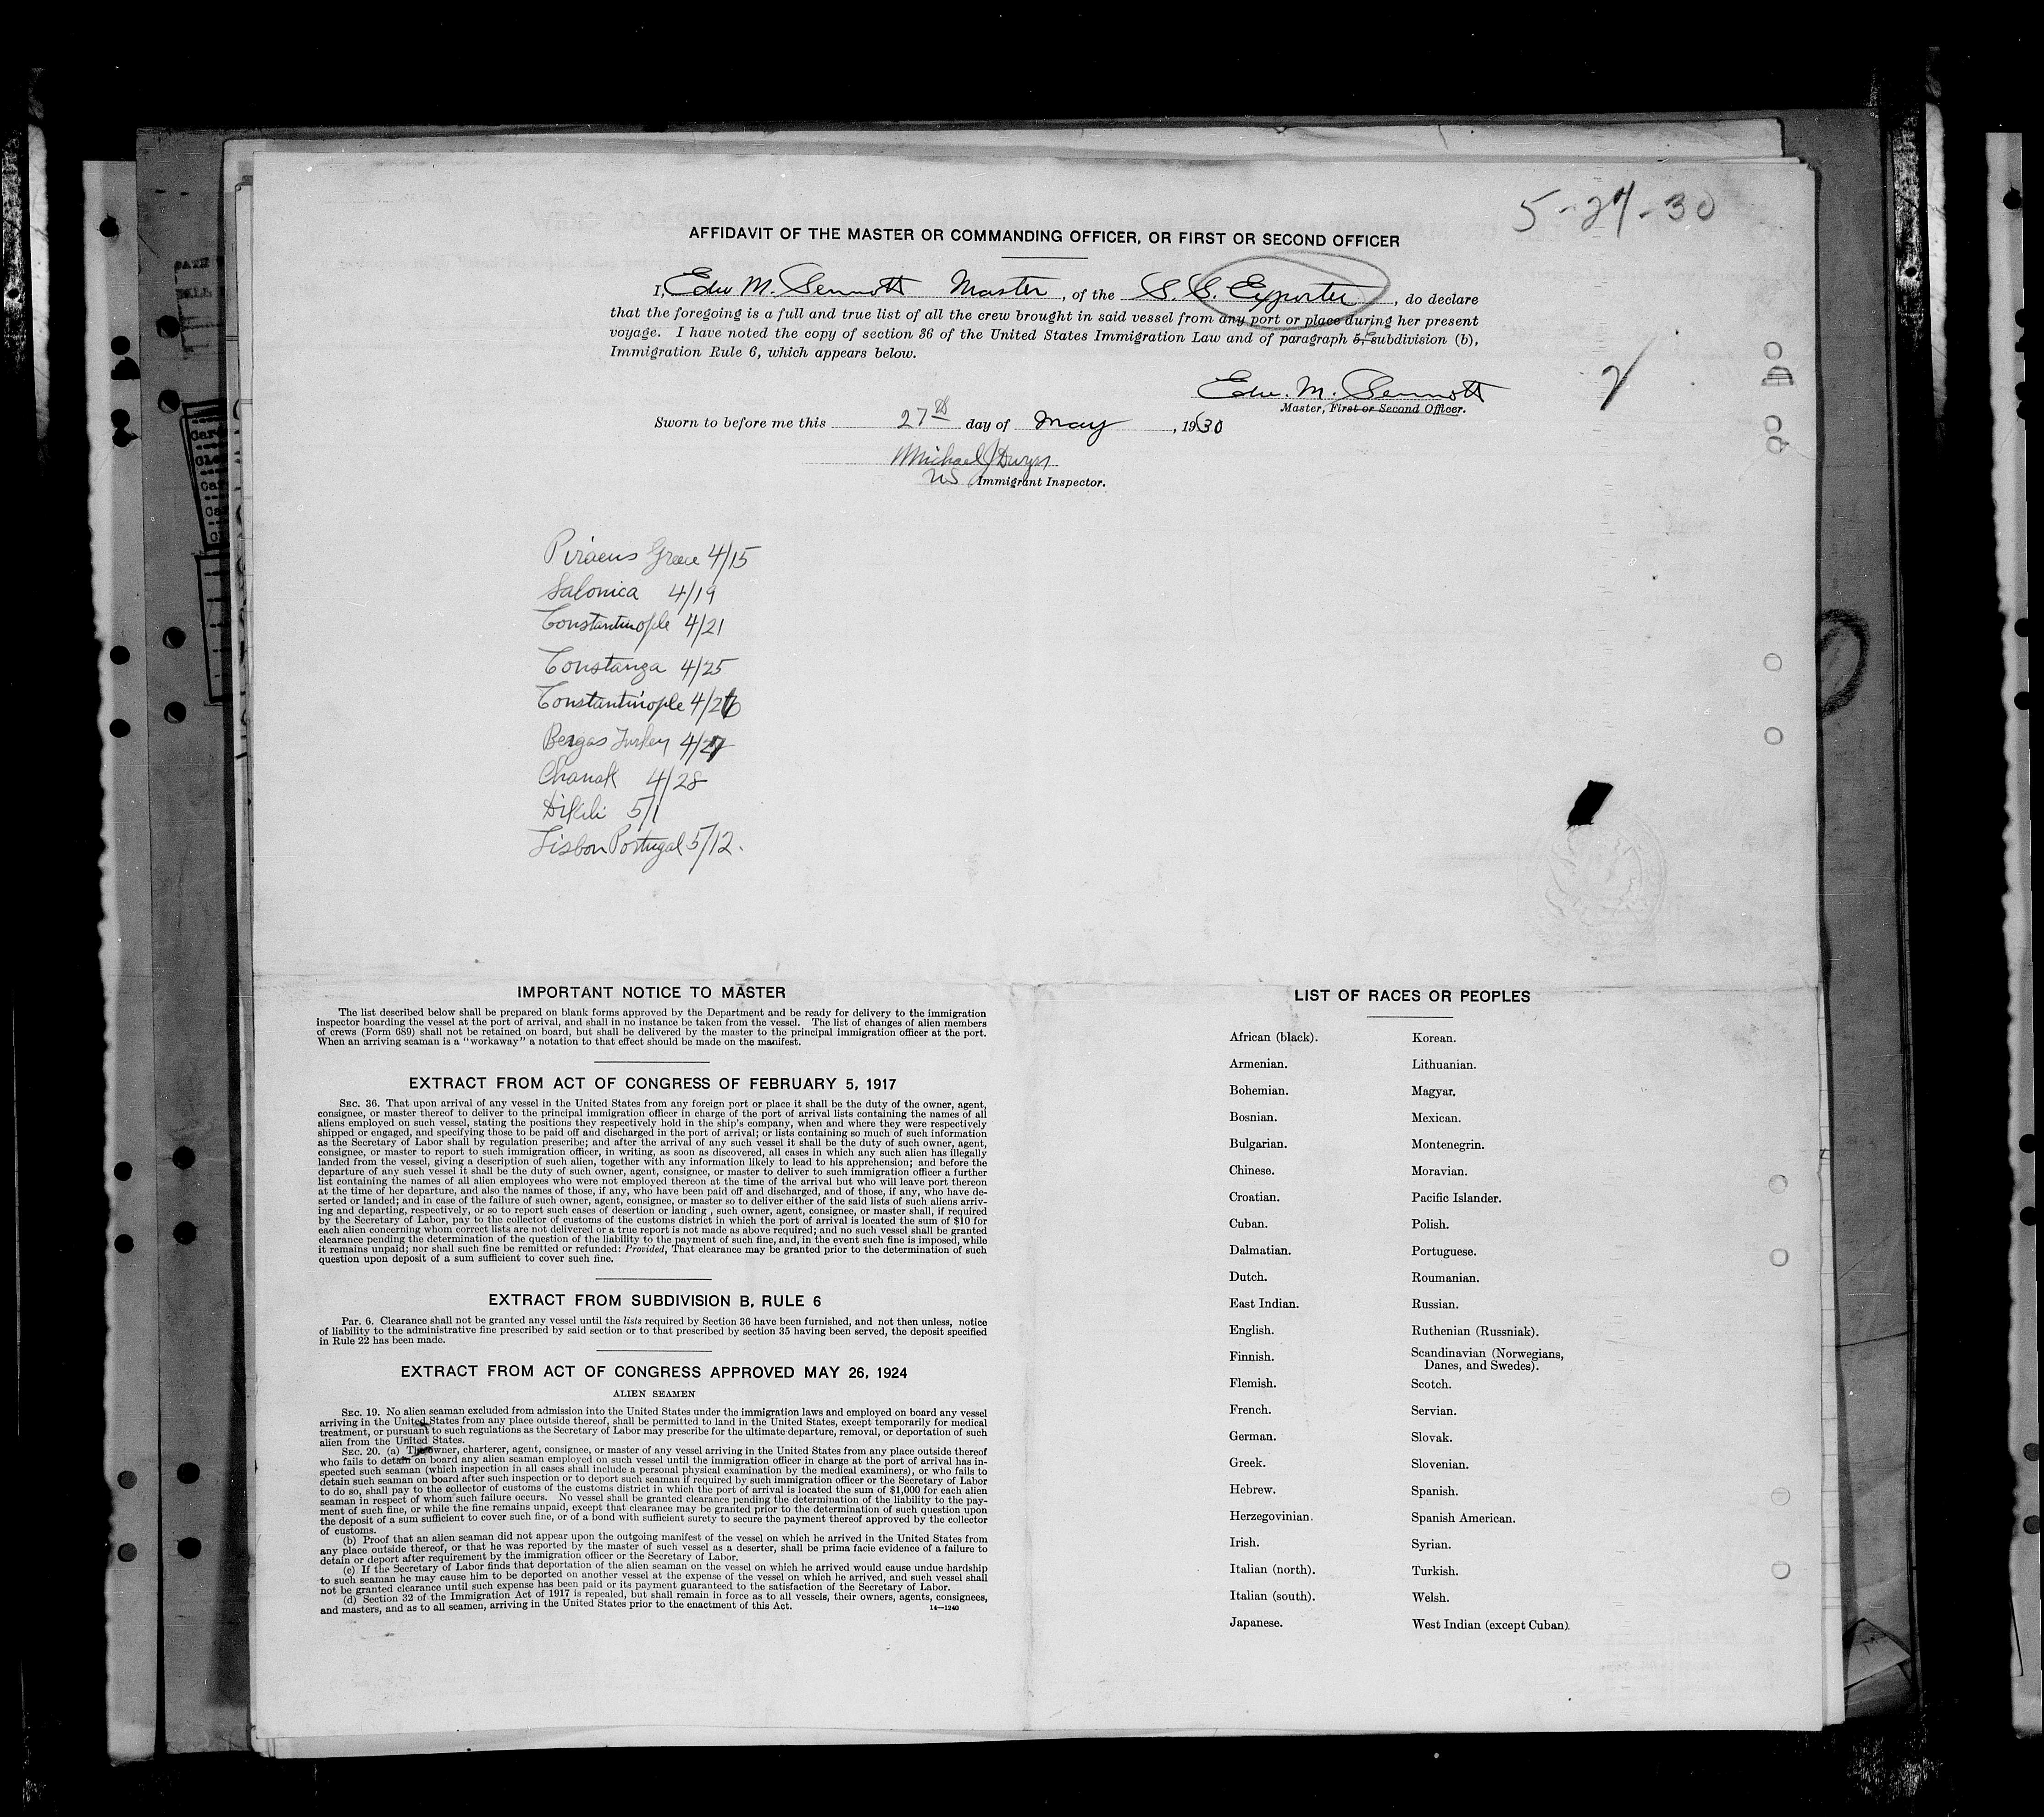 5-27-30
AFFIDAVIT OF THE MASTER OR COMMANDING OFFICER, OR FIRST OR SECOND OFFICER
I, Edw M. Sennott Master, of the S.S. Exporter, do declare
that the foregoing is a full and true list of all the crew brought in said vessel from any port or place during her present
voyage. I have noted the copy of section 36 of the United States Immigration Law and of paragraph 5, subdivision (b),
Immigration Rule 6, which appears below.
Edw. M. Sennott
Master, First or Second Officer.
Sworn to before me this 27th day of May, 1930
Michael J Dwyer
US Immigrant Inspector.
Piraeus Greece 4/15
Salonica 4/19
Constantinople 4/21
Constanza 4/25
Constantinople 4/26
Bergas Turkey 4/27
Chanak 4/28
Dikili 5/1
Lisbon Portugal 5/12.
IMPORTANT NOTICE TO MASTER
The list described below shall be prepared on blank forms approved by the Department and be ready for delivery to the immigration
inspector boarding the vessel at the port of arrival, and shall in no instance be taken from the vessel. The list of changes of alien members
of crews (Form 689) shall not be retained on board, but shall be delivered by the master to the principal immigration officer at the port.
When an arriving seaman is a "workaway" a notation to that effect should be made on the manifest.
EXTRACT FROM ACT OF CONGRESS OF FEBRUARY 5, 1917
SEC. 36. That upon arrival of any vessel in the United States from any foreign port or place it shall be the duty of the owner, agent,
consignee, or master thereof to deliver to the principal immigration officer in charge of the port of arrival lists containing the names of all
aliens employed on such vessel, stating the positions they respectively hold in the ship's company, when and where they were respectively
shipped or engaged, and specifying those to be paid off and discharged in the port of arrival; or lists containing so much of such information
as the Secretary of Labor shall by regulation prescribe; and after the arrival of any such vessel it shall be the duty of such owner, agent,
consignee, or master to report to such immigration officer, in writing, as soon as discovered, all cases in which any such alien has illegally
landed from the vessel, giving a description of such alien, together with any information likely to lead to his apprehension; and before the
departure of any such vessel it shall be the duty of such owner, agent, consignee, or master to deliver to such immigration officer a further
list containing the names of all alien employees who were not employed thereon at the time of the arrival but who will leave port thereon
at the time of her departure, and also the names of those, if any, who have been paid off and discharged, and of those, if any, who have de-
serted or landed; and in case of the failure of such owner, agent, consignee, or master so to deliver either of the said lists of such aliens arriv-
ing and departing, respectively, or so to report such cases of desertion or landing , such owner, agent, consignee, or master shall, if required
by the Secretary of Labor, pay to the collector of customs of the customs district in which the port of arrival is located the sum of $10 for
each alien concerning whom correct lists are not delivered or a true report is not made as above required; and no such vessel shall be granted
clearance pending the determination of the question of the liability to the payment of such fine, and, in the event such fine is imposed, while
it remains unpaid; nor shall such fine be remitted or refunded: Provided, That clearance may be granted prior to the determination of such
question upon deposit of a sum sufficient to cover such fine.
EXTRACT FROM SUBDIVISION B, RULE 6
Par. 6. Clearance shall not be granted any vessel until the lists required by Section 36 have been furnished, and not then unless, notice
of liability to the administrative fine prescribed by said section or to that prescribed by section 35 having been served, the deposit specified
in Rule 22 has been made.
EXTRACT FROM ACT OF CONGRESS APPROVED MAY 26, 1924
ALIEN SEAMEN
SEC. 19. No alien seaman excluded from admission into the United States under the immigration laws and employed on board any vessel
arriving in the United States from any place outside thereof, shall be permitted to land in the United States, except temporarily for medical
treatment, or pursuant to such regulations as the Secretary of Labor may prescribe for the ultimate departure, removal, or deportation of such
alien from the United States.
SEC. 20. (a) The owner, charterer, agent, consignee, or master of any vessel arriving in the United States from any place outside thereof
who fails to detain on board any alien seaman employed on such vessel until the immigration officer in charge at the port of arrival has in-
spected such seaman (which inspection in all cases shall include a personal physical examination by the medical examiners), or who fails to
detain such seaman on board after such inspection or to deport such seaman if required by such immigration officer or the Secretary of Labor
to do so, shall pay to the collector of customs of the customs district in which the port of arrival is located the sum of $1,000 for each alien
seaman in respect of whom such failure occurs. No vessel shall be granted clearance pending the determination of the liability to the pay-
ment of such fine, or while the fine remains unpaid, except that clearance may be granted prior to the determination of such question upon
the deposit of a sum sufficient to cover such fine, or of a bond with sufficient surety to secure the payment thereof approved by the collector
of customs.
(b) Proof that an alien seaman did not appear upon the outgoing manifest of the vessel on which he arrived in the United States from
any place outside thereof, or that he was reported by the master of such vessel as a deserter, shall be prima facie evidence of a failure to
detain or deport after requirement by the immigration officer or the Secretary of Labor.
(c) If the Secretary of Labor finds that deportation of the alien seaman on the vessel on which he arrived would cause undue hardship
to such seaman he may cause him to be deported on another vessel at the expense of the vessel on which he arrived, and such vessel shall
not be granted clearance until such expense has been paid or its payment guaranteed to the satisfaction of the Secretary of Labor.
(d) Section 32 of the Immigration Act of 1917 is repealed, but shall remain in force as to all vessels, their owners, agents, consignees,
and masters, and as to all seamen, arriving in the United States prior to the enactment of this Act.
14—1240
LIST OF RACES OR PEOPLES
African (black).
Armenian.
Bohemian.
Bosnian.
Bulgarian.
Chinese.
Croatian.
Cuban.
Dalmatian.
Dutch.
East Indian.
English.
Finnish.
Flemish.
French.
German.
Greek.
Hebrew.
Herzegovinian.
Irish.
Italian (north).
Italian (south).
Japanese.
Korean.
Lithuanian.
Magyar.
Mexican.
Montenegrin.
Moravian.
Pacific Islander.
Polish.
Portuguese.
Roumanian.
Russian.
Ruthenian (Russniak).
Scandinavian (Norwegians,
Danes, and Swedes).
Scotch.
Servian.
Slovak.
Slovenian.
Spanish.
Spanish American.
Syrian.
Turkish.
Welsh.
West Indian (except Cuban).